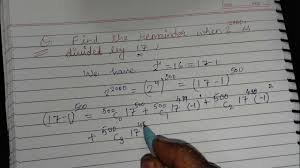 Q. Find the remainder when 2^2000 is
divided by 17.
We have 2^4 = 16 = 17-1
2^2000 = (2^4)^500 = (17-1)^500
(17-1)^500 = ^500C_0 17^500 + ^500C_1 17^499 (-1)^1 + ^500C_2 17^498 (-1)^2
+ ^500C_3 17^49